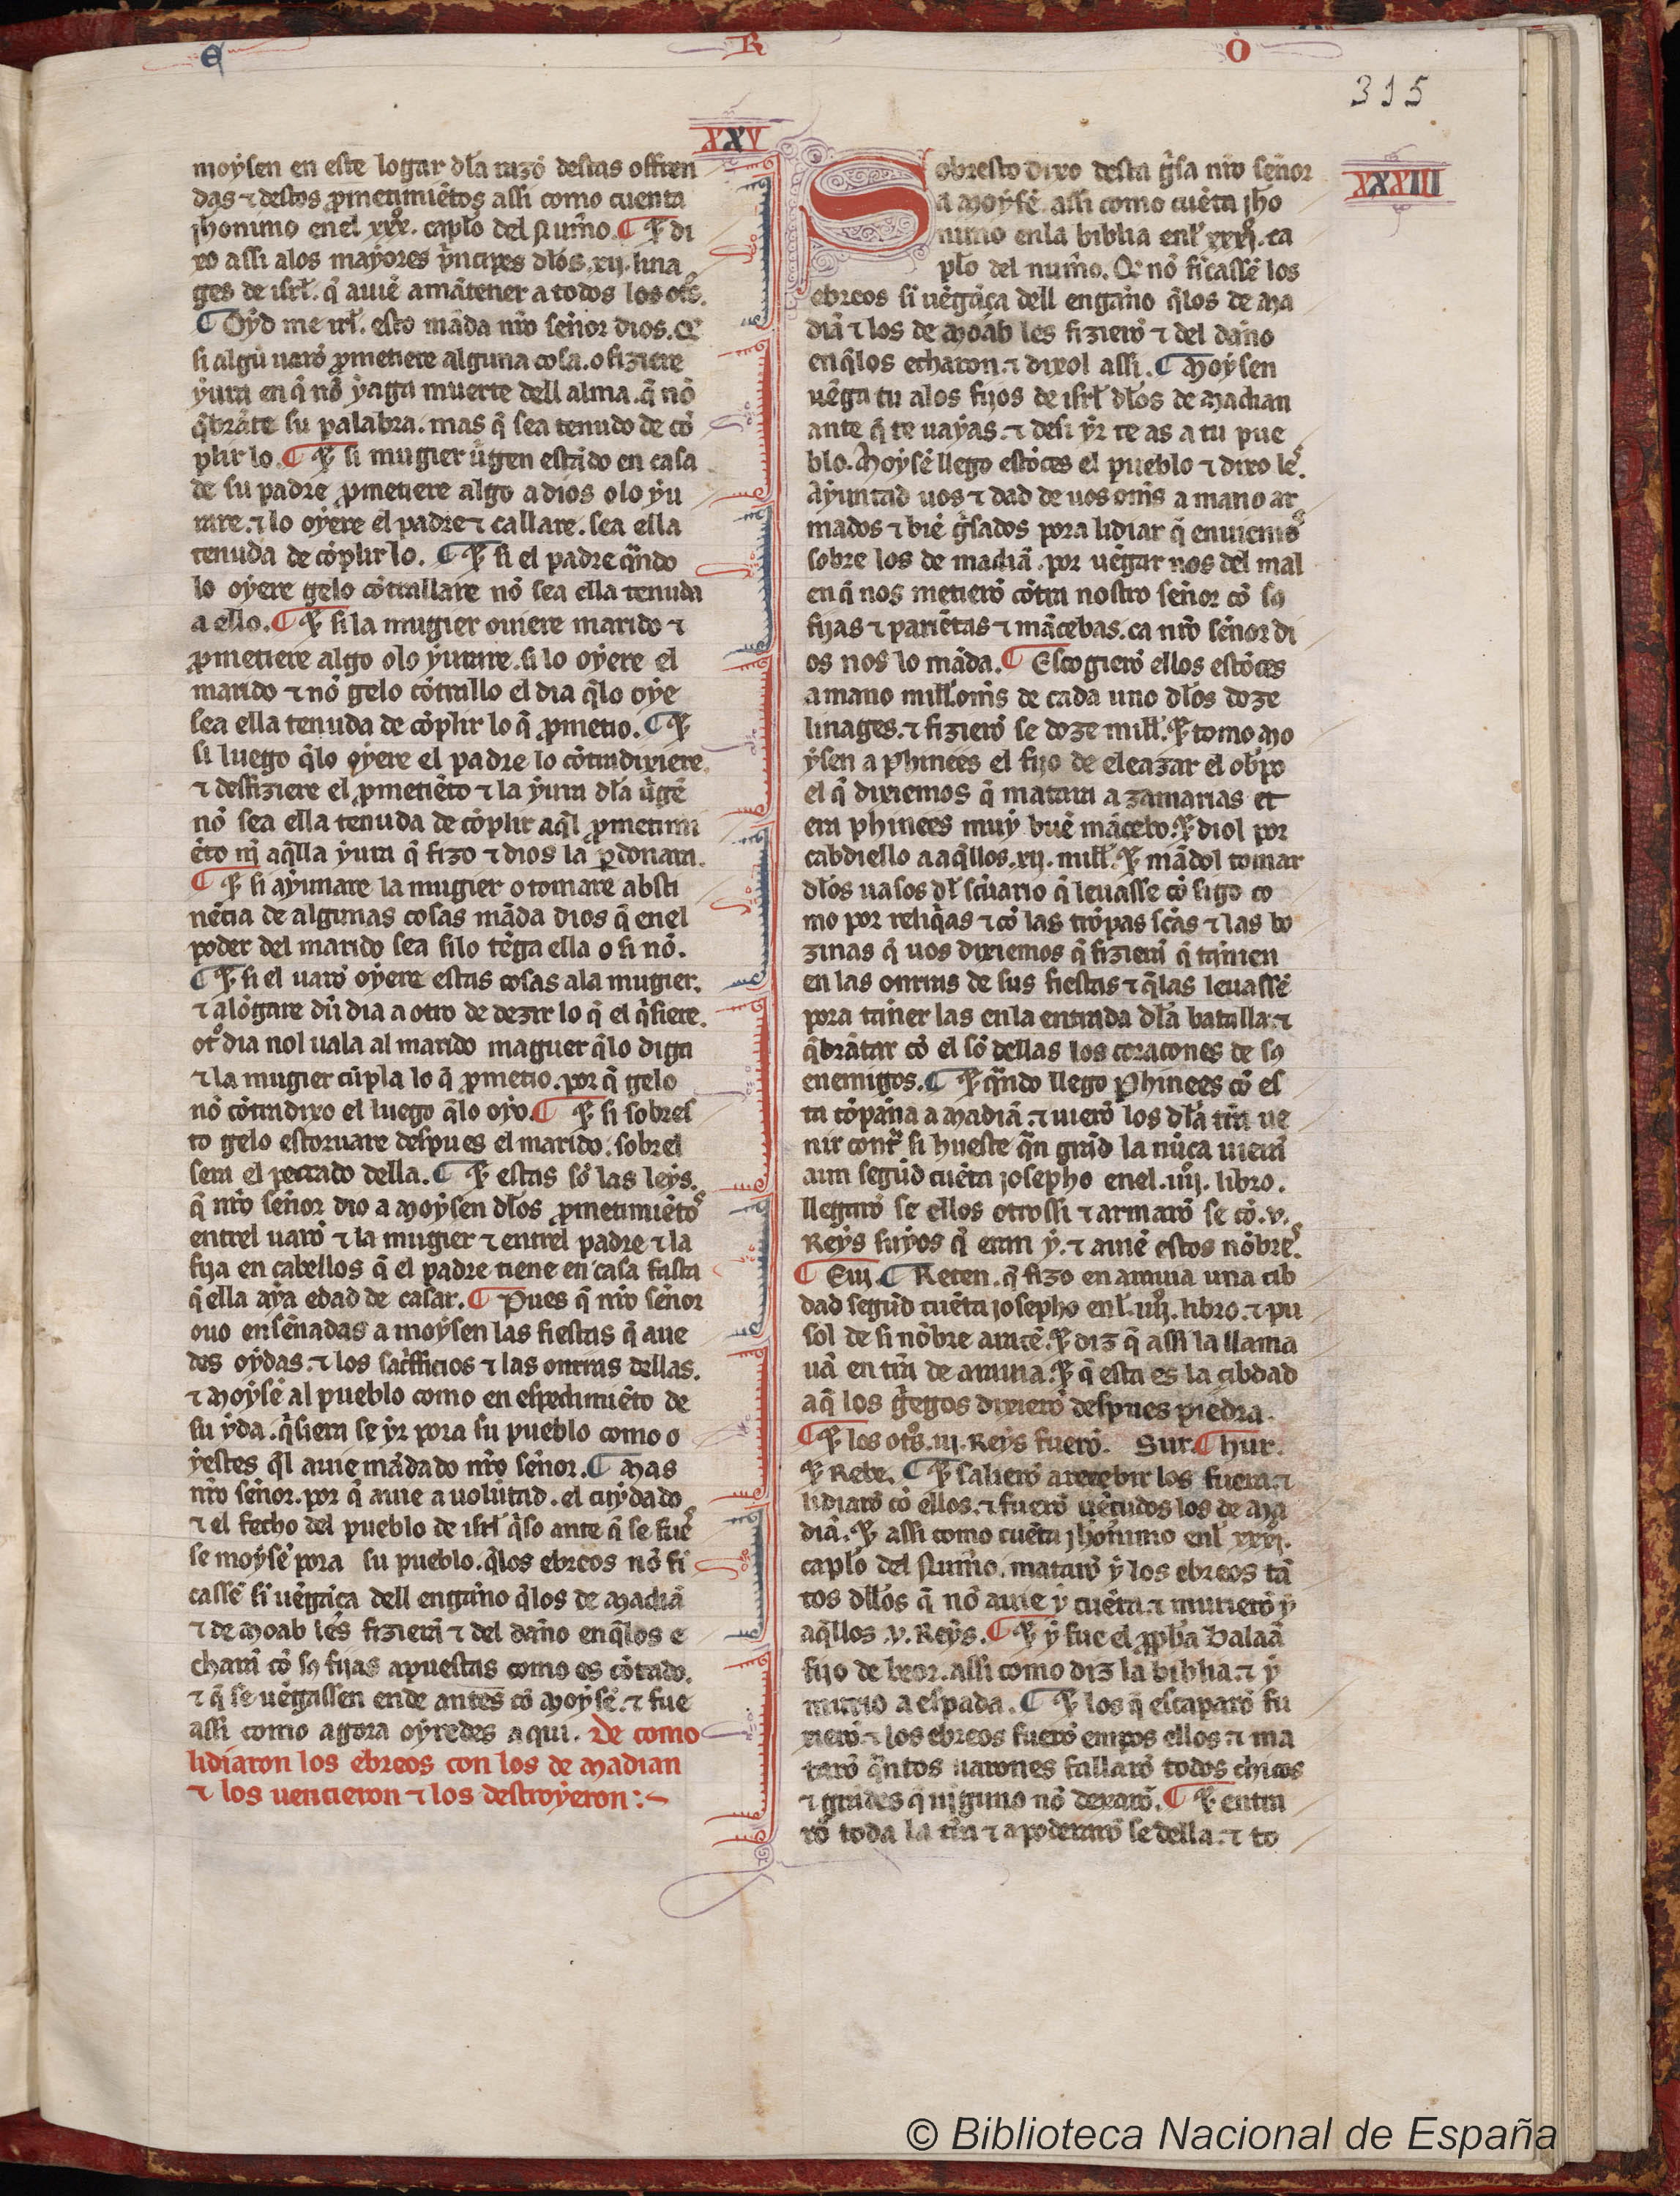 E R O
315
XXV
moysen en este logar dła razõ destas offren
das ⁊ destos ꝓmetimiẽtos assi como cuenta
jheronimo enel .xxxº. capło del Num̃o. ¶ ⁊ di
xo assi alos mayores p̃ncipes dłos .xij. lina
ges de isrł. q̃ auiẽ a mãtener a todos los otͦs.
¶ Oyd me isrł. esto mãda nr̃o señor dios. Q̃
si algũ uarõ ꝓmetiere alguna cosa. o fiziere
yura en q̃ nõ yaga muerte dell alma. q̃ nõ
q̃brãte su palabra. mas q̃ sea tenudo de cõ
plir lo. ¶ ⁊ si mugier uirgen estãdo en casa
de su padre ꝓmetiere algo a dios o lo yu
rare. ⁊ lo oyere el padre ⁊ callare. sea ella
tenuda de cõplir lo. ¶ ⁊ si el padre q̃ndo
lo oyere gelo cõtrallare nõ sea ella tenuda
a ello. ¶ ⁊ si la mugier ouiere marido ⁊
ꝓmetiere algo o lo yurare. si lo oyere el
marido ⁊ nõ gelo cõtrallo el dia q̃lo oye
sea ella tenuda de cõplir lo q̃ ꝓmetio. ¶ ⁊
si luego q̃lo oyere el padre lo cõtradixiere.
⁊ desfiziere el ꝓmetiẽto ⁊ la yura dła uirgẽ
nõ sea ella tenuda de cõplir aq̃l ꝓmetimi
ẽto nĩ aq̃lla yura q̃ fizo ⁊ dios la ꝑdonara.
¶ ⁊ si ayunare la mugier o tomare absti
nẽcia de algunas cosas mãda dios q̃ enel
poder del marido sea si lo tẽga ella o si nõ.
¶ ⁊ si el uarõ oyere estas cosas ala mugier.
⁊ alõgare dũ dia a otro de dezir lo q̃ el q̃siere.
otͦ dia nol uala al marido maguer q̃lo diga
⁊ la mugier cũpla lo q̃ ꝓmetio. por q̃ gelo
nõ cõtradixo el luego q̃lo oyo. ¶ ⁊ si sobres
to gelo estoruare despues el marido. sobrel
sera el peccado della. ¶ ⁊ estas sõ las leys.
q̃ nr̃o señor dio a Moysen dłos ꝓmetimiẽtos
entrel uarõ ⁊ la mugier ⁊ entrel padre ⁊ la
fija en cabellos q̃ el padre tiene en casa fasta
q̃ ella aya edad de casar. ¶ Pues q̃ nr̃o señor
ouo enseñadas a moysen las fiestas q̃ aue
des oydas. ⁊ los sac̃fficios ⁊ las onrras dellas.
⁊ Moysẽ al pueblo como en espedimiẽto de
su yda. q̃siera se yr pora su pueblo como o
yestes q̃l auie mãdado nr̃o señor. ¶ Mas
nr̃o señor. por q̃ auie a uolũtad. el cuydado
⁊ el fecho del pueblo de isrł q̃so ante q̃ se fue
se moysẽ pora su pueblo. q̃los ebreos nõ fi
cassẽ si uẽgãça dell engaño q̃los de Madiã
⁊ de Moab les fizierã ⁊ del daño en q̃los e
charã cõ sꝯ fijas apuestas como es cõtado.
⁊ q̃ se uẽgassen ende antes cõ Moysẽ. ⁊ fue
assi como agora oyredes aqui. De como
lidiaron los ebreos con los de Madian
⁊ los uencieron ⁊ los destroyeron :~
XXXIIII
Sobresto dixo desta g̃sa nr̃o señor
a Moysẽ. assi como cuẽta jhe
nimo enla biblia enł .xxxjº. ca
pło del num̃o. Q̃ nõ ficassẽ los
ebreos si uẽgãça dell engaño q̃los de Ma
diã ⁊ los de Moab les fizierõ ⁊ del daño
en q̃los echaron. ⁊ dixol assi. ¶ Moysen
uẽga tu alos fijos de isrł dłos de Madian
ante q̃ te uayas. ⁊ desi yr te as a tu pue
blo. Moysẽ llego estõces el pueblo ⁊ dixo les.
Ayuntad uos ⁊ dad de uos om̃s a mano ar
mados ⁊ biẽ g̃sados pora lidiar q̃ enuiemos
sobre los de madiã. por uẽgar nos del mal
en q̃ nos metierõ cõtra nostro señor cõ sꝯ
fijas ⁊ pariẽtas ⁊ mãcebas. ca nr̃o señor di
os nos lo mãda. ¶ Escogierõ ellos estõces
a mano mill. om̃s de cada uno dłos doze
linages. ⁊ fizierõ se doze mill. ⁊ tomo Mo
ysen a Phinees el fijo de eleazar el obpo
el q̃ dixiemos q̃ matara a zamarias et
era phinees muy buẽ mãcebo. ⁊ diol por
cabdiello a aq̃llos .xij. mill. ⁊ mãdol tomar
dłos uasos dł sc̃uario q̃ leuasse cõ sigo co
mo por reliq̃as ⁊ cõ las trõpas sc̃as ⁊ las bo
zinas q̃ uos dixiemos q̃ fizierã q̃ tañien
en las onrras de sus fiestas ⁊ q̃las leuassẽ
pora tañer las enla entrada dła batalla. ⁊
q̃brãtar cõ el sõ dellas los coraçones de sꝯ
enemigos. ¶ ⁊ q̃ndo llego Phinees cõ es
ta cõpaña a Madiã. ⁊ uierõ los dła tr̃a ue
nir contͣ si hueste q̃n grãd la nũca uierã
aun segũd cuẽta josepho enel .iiijº. libro.
llegarõ se ellos otrossi ⁊ armarõ se cõ .v.
Reys suyos q̃ eran y. ⁊ auiẽ estos nõbres.
¶ Euj. ¶ Recen. q̃ fizo en arauia una cib
dad segũd cuẽta josepho enł .iiijº. libro. ⁊ pu
sol de si nõbre aracẽ. ⁊ diz q̃ assi la llama
uã en tr̃a de arauia. ⁊ q̃ esta es la cibdad
a q̃ los g̃egos dixierõ despues piedra.
¶ ⁊ los otͦs .iij. Reys fuerõ. Sur. ¶ hur.
⁊ Rebe. ¶ ⁊ salierõ a recebir los fuera. ⁊
lidiarõ cõ ellos. ⁊ fuerõ uẽçudos los de Ma
diã. ⁊ assi como cuẽta jheronimo enł .xxxjº.
capło del Num̃o. matarõ y los ebreos tã
tos dłłos q̃ nõ auie y cuẽta. ⁊ murierõ y
aq̃llos .v. Reys. ¶ ⁊ y fue el ꝓpħa Balaã
fijo de beor. assi como diz la biblia. ⁊ y
murio a espada. ¶ ⁊ los q̃ escaparõ fu
xierõ. ⁊ los ebreos fuerõ empos ellos. ⁊ ma
tarõ q̃ntos uarones fallarõ todos chicos
⁊ grãdes q̃ nĩguno nõ dexarõ. ¶ ⁊ entra
rõ toda la tr̃a ⁊ apoderarõ se della. ⁊ to
© Biblioteca Nacional de España